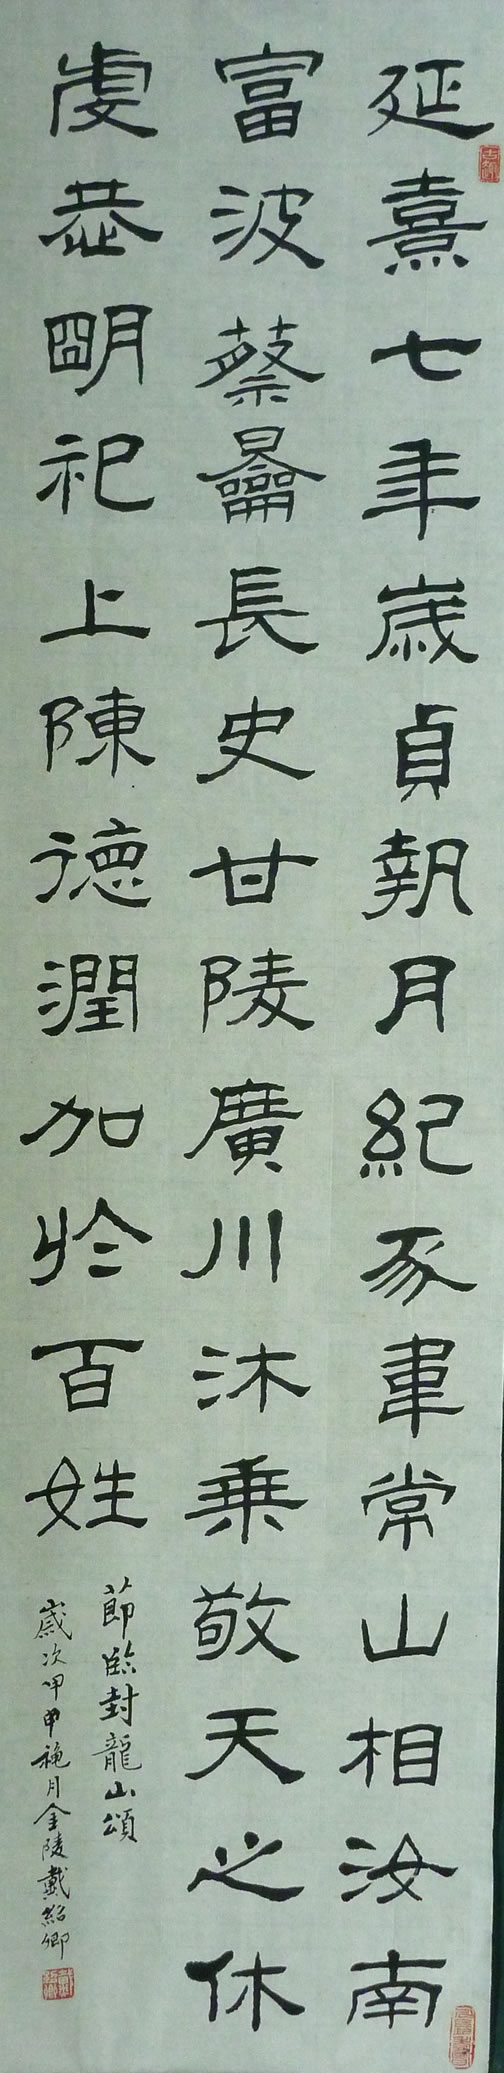 延熹七年歲貞執月紀豕韋常山相汝南
富波蔡龠長史甘陵廣川沐乘敬天之休
虔恭明祀上陳德潤加於百姓
節臨封龍山頌
歲次甲申穐月金陵戴紹卿